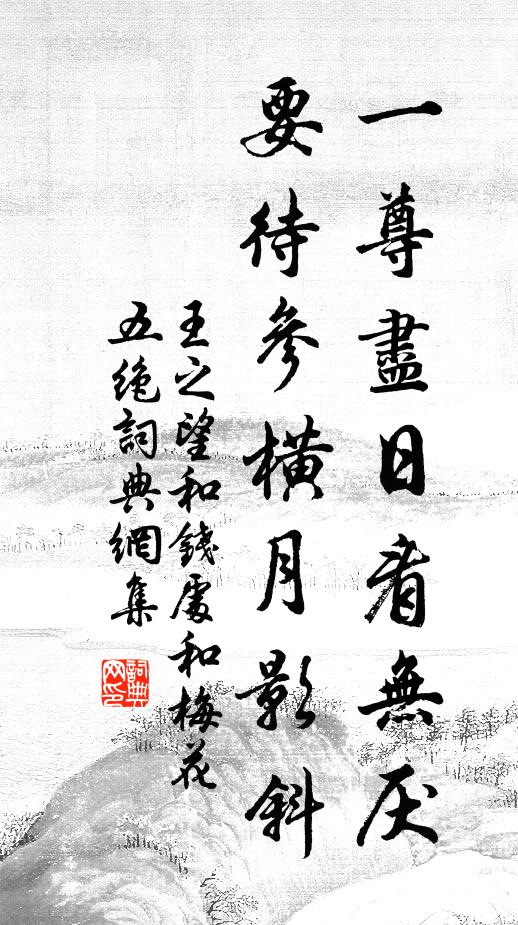 一尊盡日看無厌
要待參橫月影斜
王之望和錢處和梅花
五绝詞典網集
詞典网印